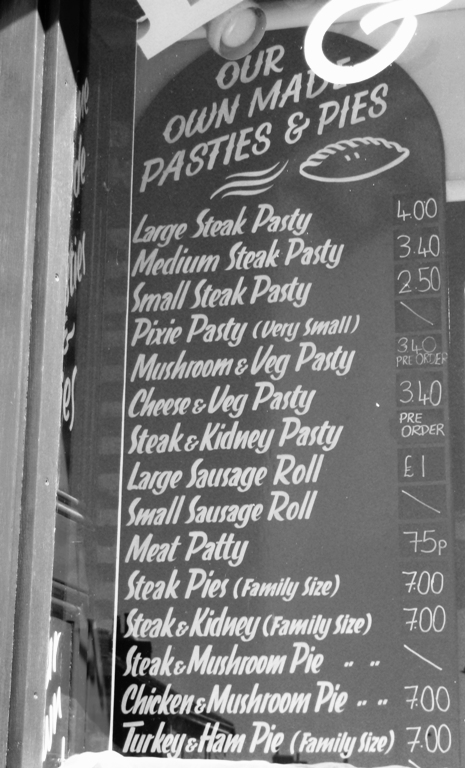 OUR
OWN MADE
PASTIES & PIES
Large Steak Pasty 4.00
Medium Steak Pasty 3.40
Small Steak Pasty 2.50
Pixie Pasty (Very Small) \
Mushroom & Veg Pasty 3.40 PRE ORDER
Cheese & Veg Pasty 3.40
Steak & Kidney Pasty PRE ORDER
Large Sausage Roll £1
Small Sausage Roll \
Meat Patty 75p
Steak Pies (Family Size) 7.00
Steak & Kidney (Family Size) 7.00
Steak & Mushroom Pie " " \
Chicken & Mushroom Pie " " 7.00
Turkey & Ham Pie (Family Size) 7.00